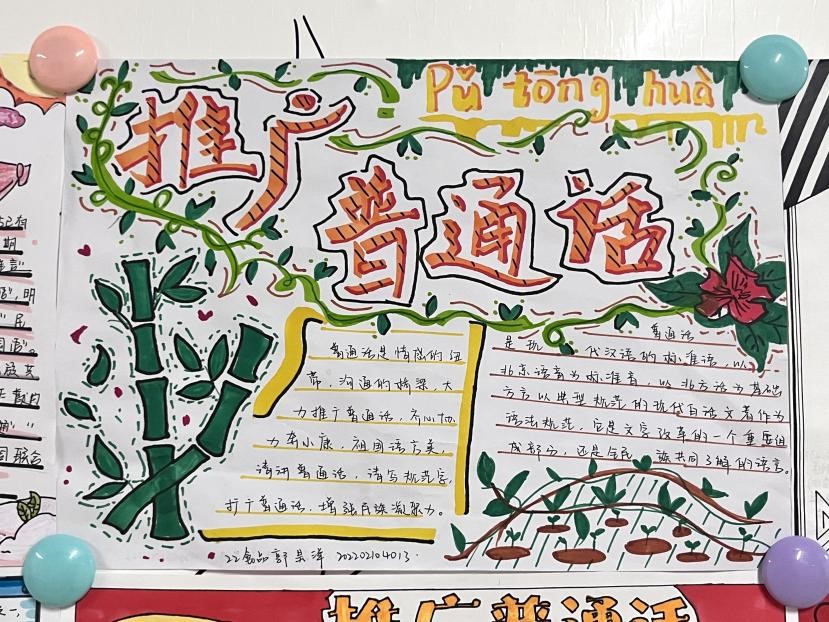 Pǔ tōng huà
推广
普通话
普通话是情感的纽
带，沟通的桥梁，大
力推广普通话，齐心协
力奔小康，祖国语言美，
请讲普通话，请写规范字，
推广普通话，增强民族凝聚力。
普通话
是现代汉语的标准语，以
北京语音为标准音，以北方话为基础
方言以典型规范的现代白话文著作为
语法规范，它是文字改革的一个重要组
成部分，还是全民族共同了解的语言。
22食品 202202104013
明
民
国语
联合
推广普通话